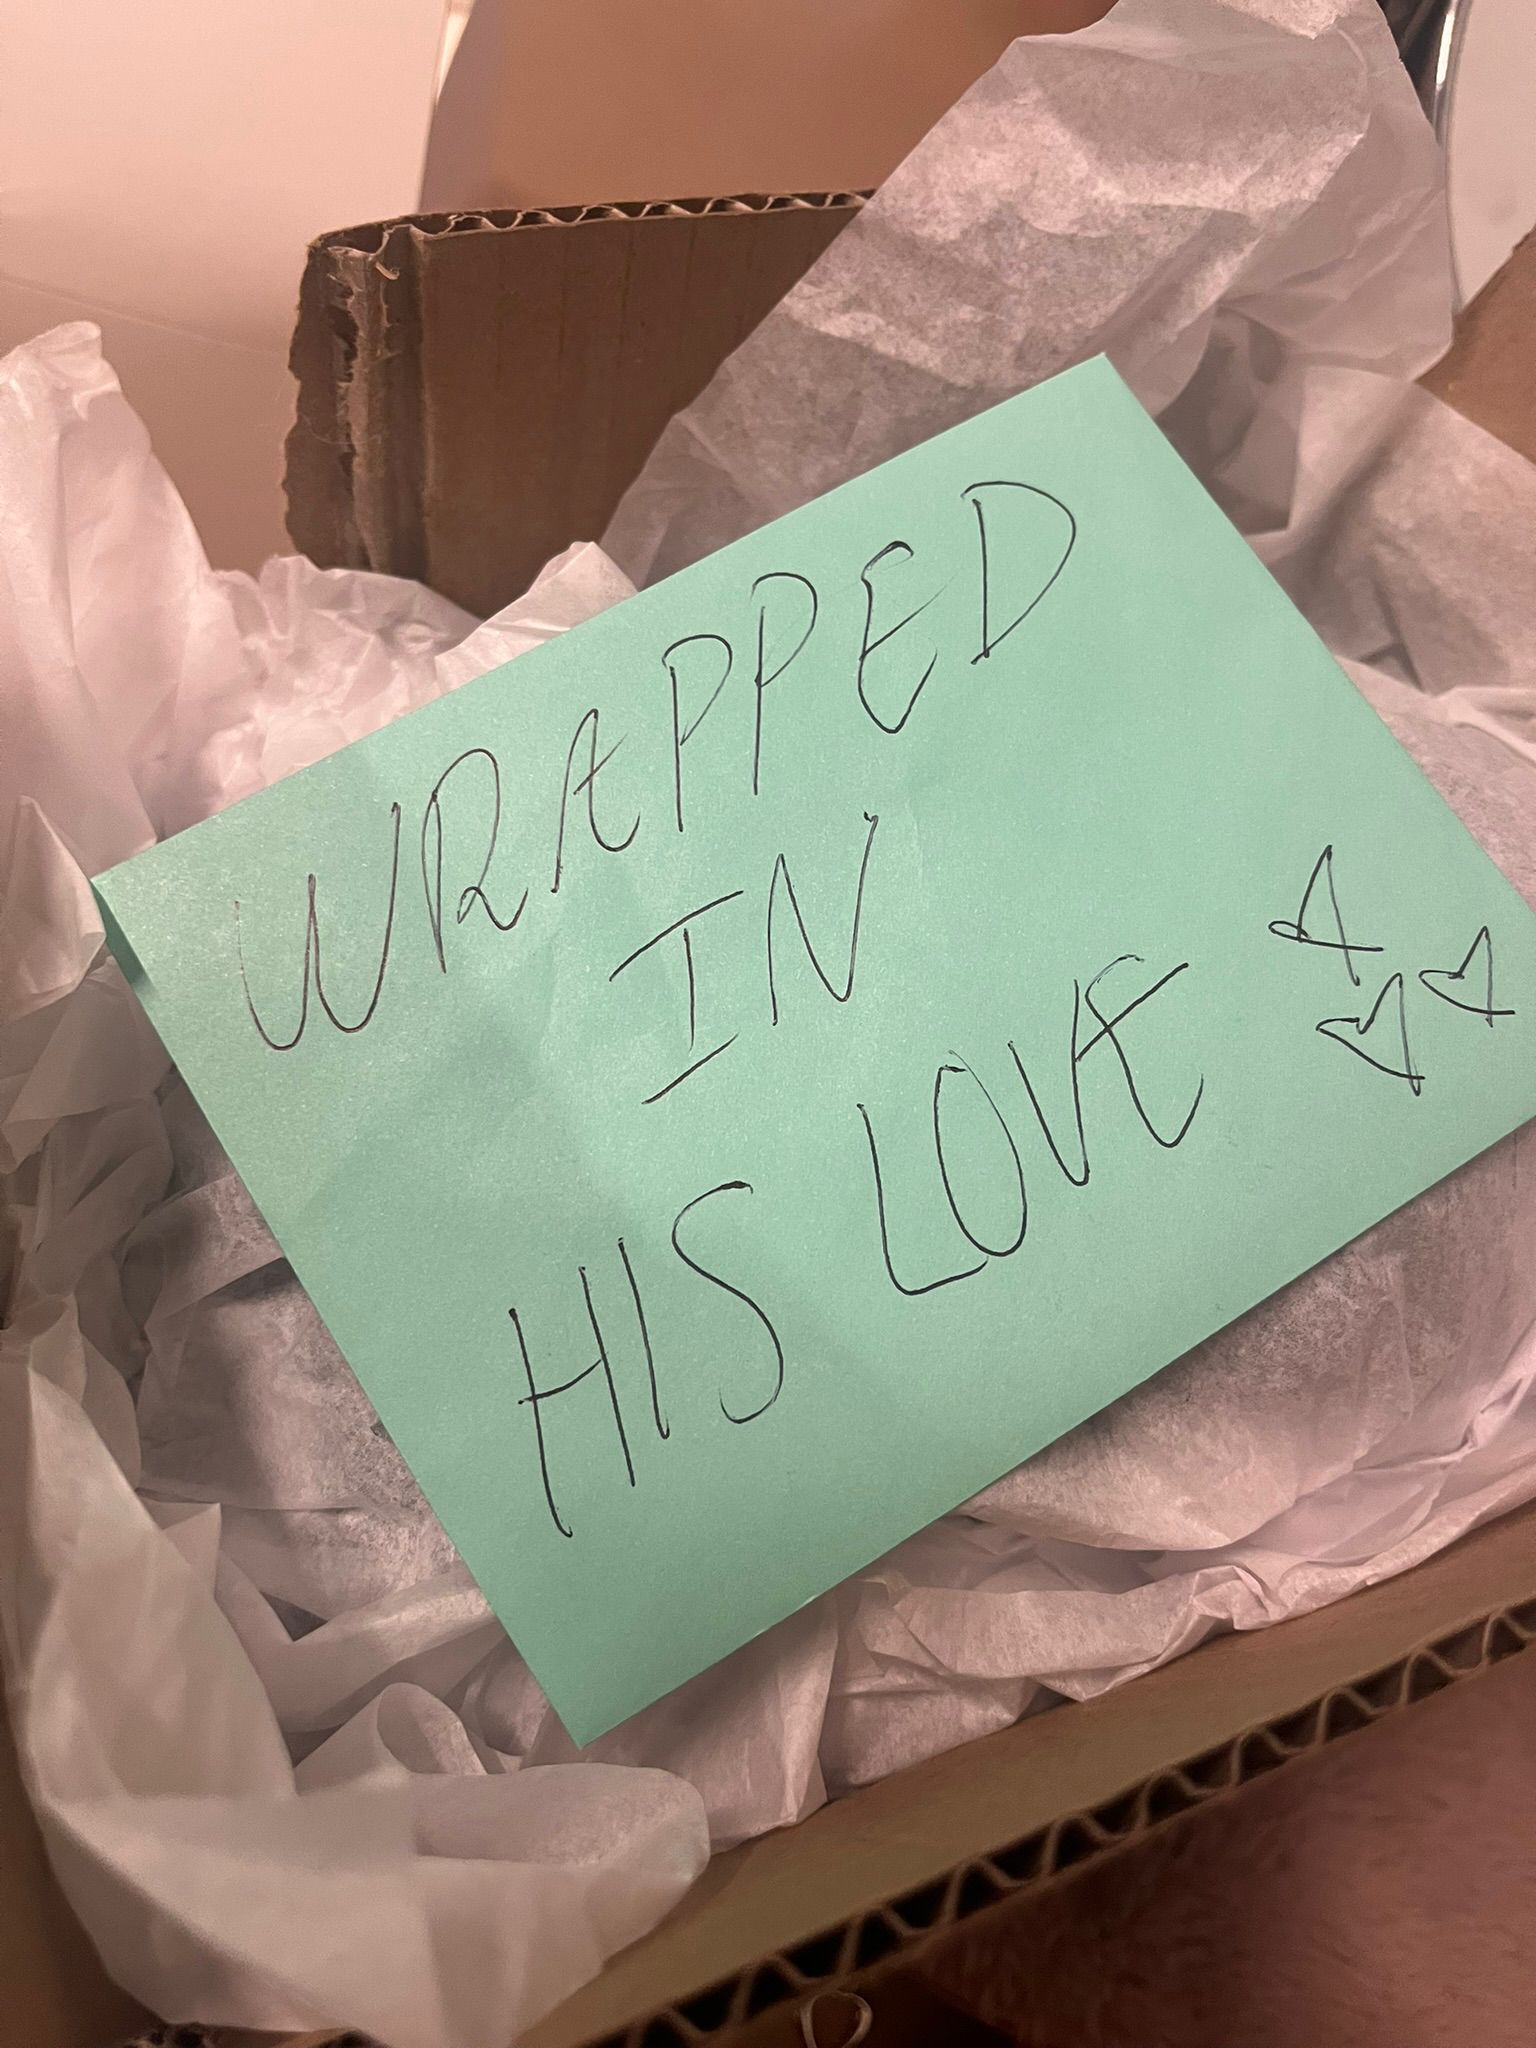 WRAPPED
IN
HIS LOVE